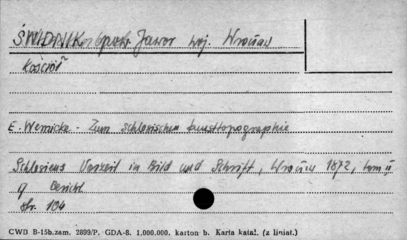 ŚWIDNIK k. Jawor woj. Wrocław
Kościół
E. Wernicke - Zum schlesischen kunsttopographie
Schlesiens Vorzeit in Bild und Schrift, Wrocław 1872, tom II
9 Bericht
str. 104
CWD B-15b.zam. 2899/P. GDA-8. 1.000.000. karton b. Karta katal. (z liniat.)